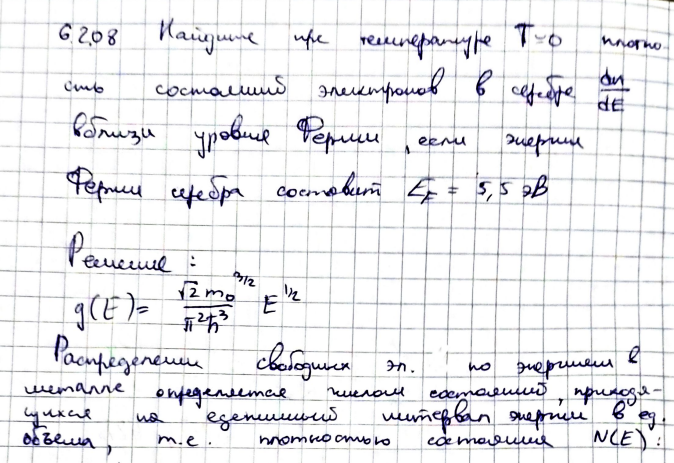 6.2.08 Найдите при температуре T=0 плотно
сть состояний электронов в серебре dn/dE
вблизи уровня Ферми, если энергия
Ферми серебра составит E_F = 5,5 эВ
Решение :
g(E)= √2 m₀^3/2 / π²ħ³ E^1/2
Распределение свободных эл. по энергиям в
металле определяется числом состояний, приходя-
щихся на единичный интервал энергии в ед.
объема, т.е. плотностью состояния N(E):